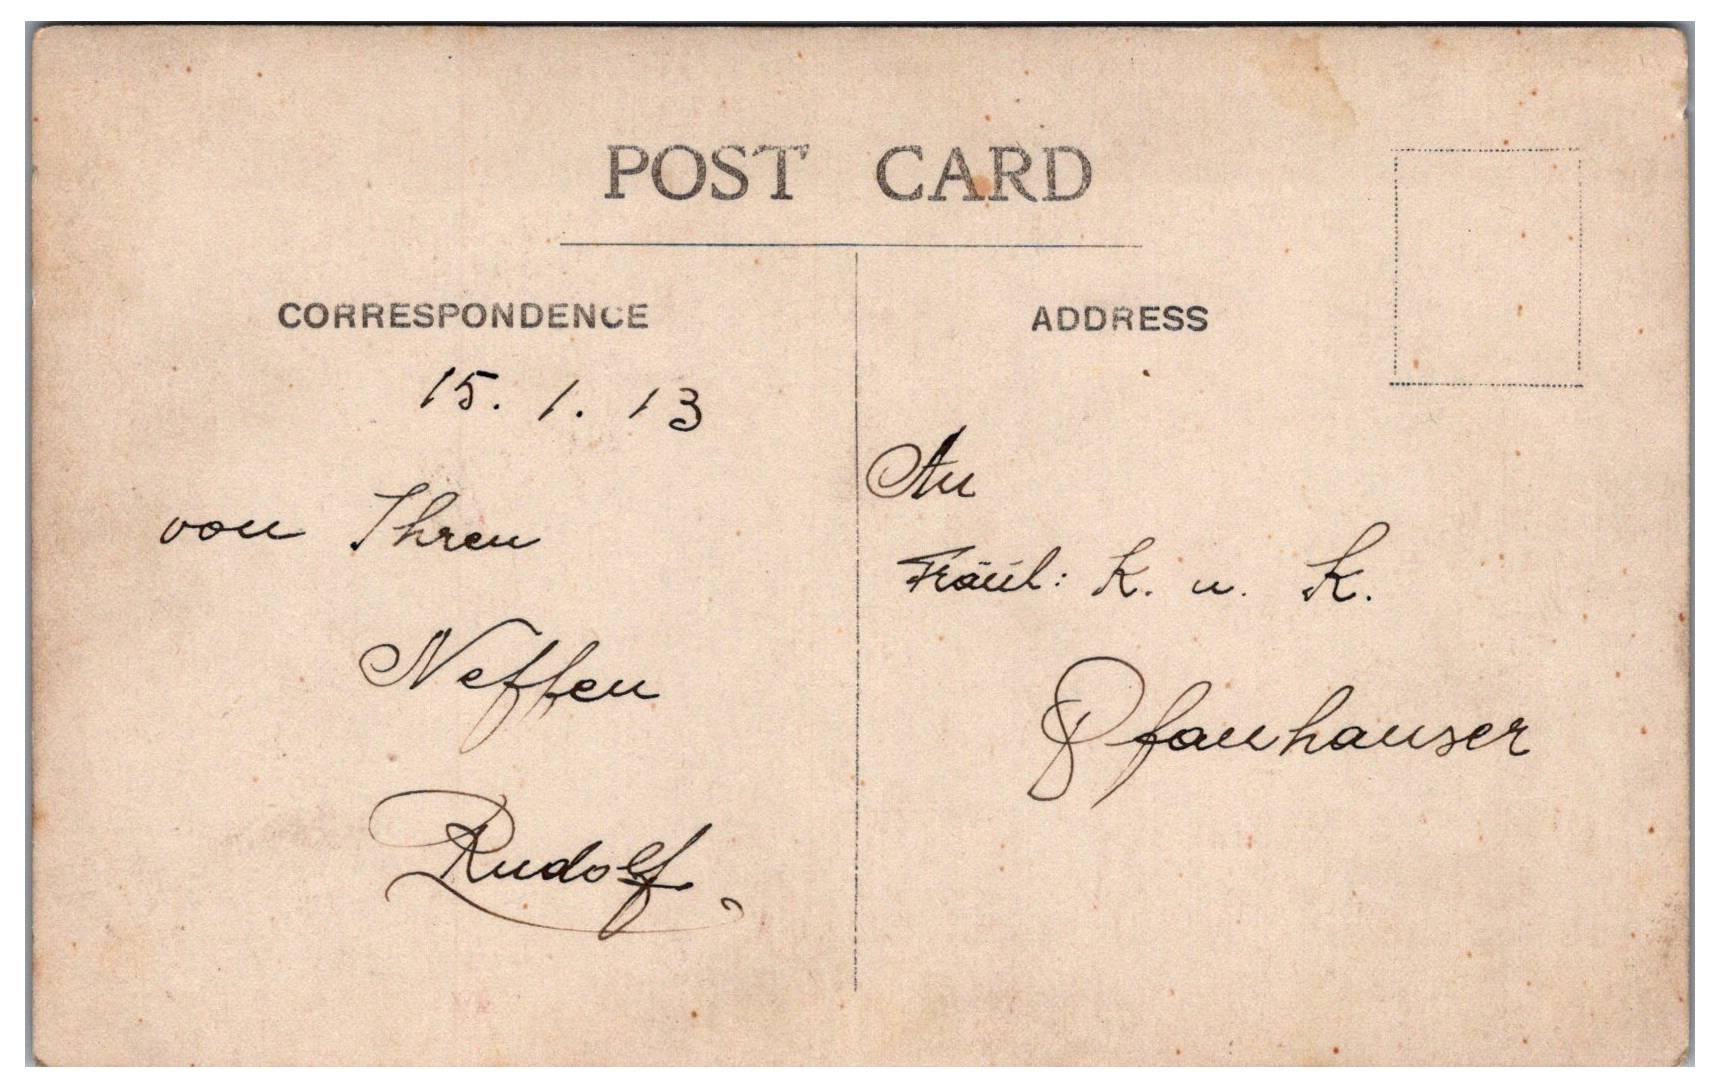 POST CARD
CORRESPONDENCE
15. 1. 13
von Ihren
Neffen
Rudolf.
ADDRESS
An
Fräul: K. u. K.
Pfanhauser